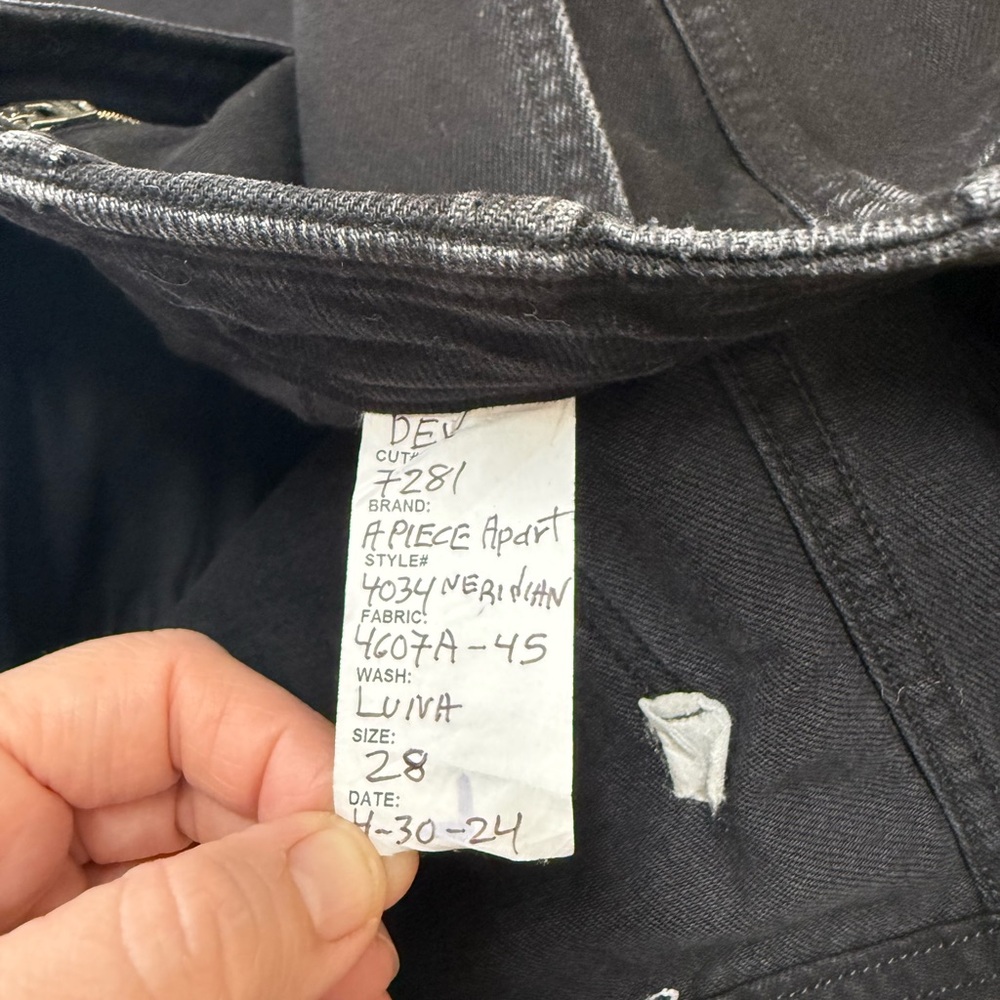 DEV
CUT#
7281
BRAND:
APIECE Apart
STYLE#
4034 MERIDIAN
FABRIC:
4607A-45
WASH:
LUNA
SIZE:
28
DATE:
4-30-24